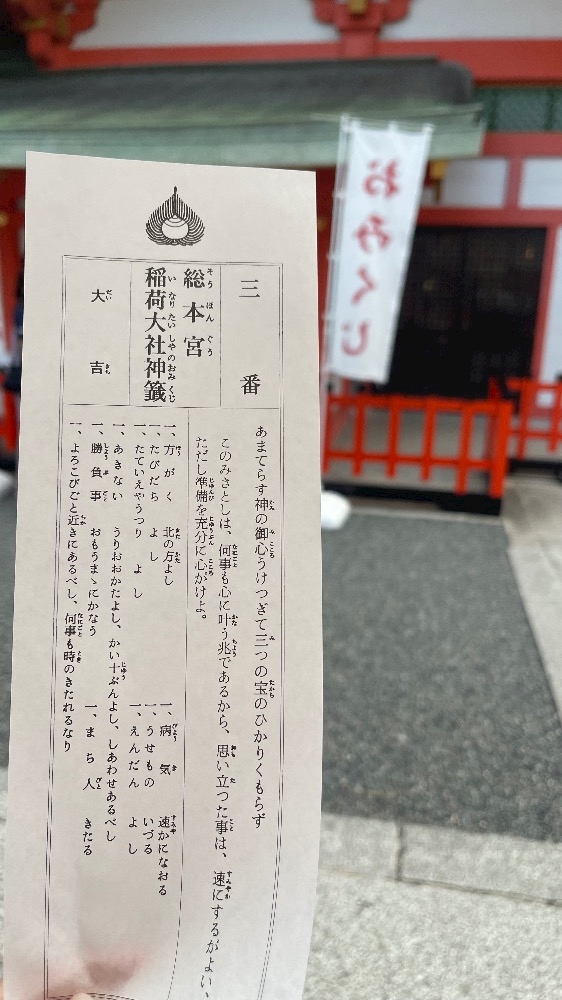 三番
総本宮
稲荷大社神籤
大吉
あまてらす神の御心うけつぎて三つの宝のひかりくもらず
このみさとしは、何事も心に叶う兆であるから、思い立つた事は、速にするがよい、
ただし準備を充分に心がけよ。
一、方がく 北の方よし
一、たびだち よし
一、たていえやうつり よし
一、あきない うりおおかたよし、かい十ぶんよし、しあわせあるべし
一、勝負事 おもうまゝにかなう
一、よろこびごと近きにあるべし、何事も時のきたれるなり
一、病気 速かになおる
一、うせもの いづる
一、えんだん よし
一、まち人 きたる
おみくじ